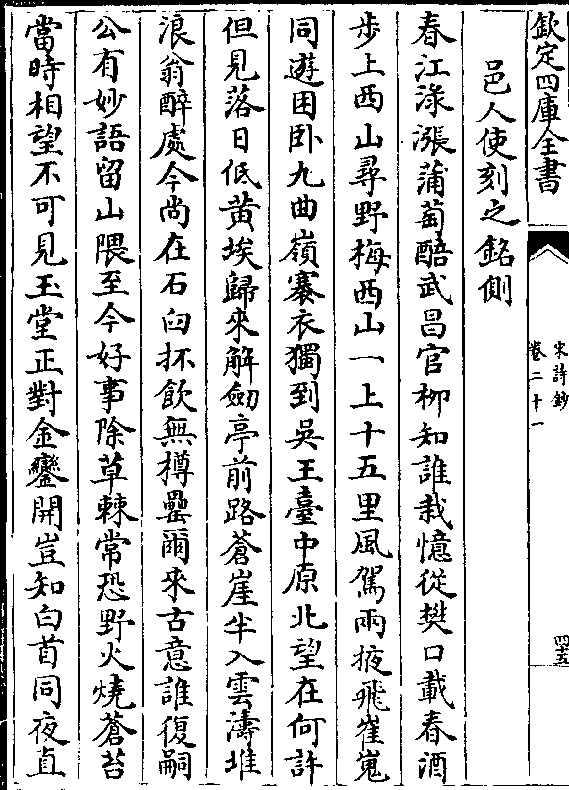 欽定四庫全書
宋詩鈔
卷二十一
四十五
邑人使刻之銘側
春江淥漲蒲萄醅武昌官柳知誰栽憶從樊口載春酒
步上西山尋野梅西山一上十五里風駕兩掖飛崔嵬
同遊困卧九曲嶺褰衣獨到吳王臺中原北望在何許
但見落日低黃埃歸來解劒亭前路蒼崖半入雲濤堆
浪翁醉處今尚在石臼抔飲無樽罍爾來古意誰復嗣
公有妙語留山隈至今好事除草棘常恐野火燒蒼苔
當時相望不可見玉堂正對金鑾開豈知白首同夜直